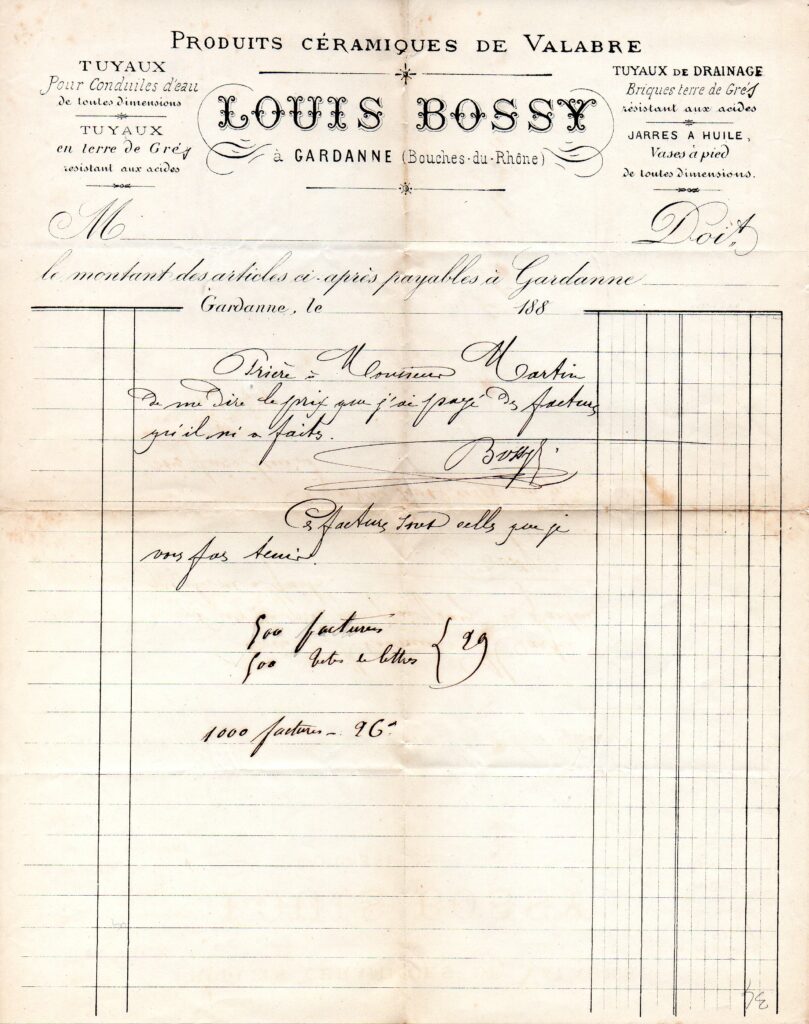 PRODUITS CÉRAMIQUES DE VALABRE
TUYAUX
Pour Conduites d'eau
de toutes dimensions
TUYAUX
en terre de Grés
resistant aux acides
LOUIS BOSSY
à GARDANNE (Bouches-du-Rhône)
TUYAUX DE DRAINAGE
Briques terre de Grés
résistant aux acides
JARRES A HUILE,
Vases à pied
de toutes dimensions.
M Doit
le montant des articles ci-après payables à Gardanne
Gardanne, le 188
Prière à Monsieur Martin
de me dire le prix que j'ai payé des factures
qu'il m'a faits.
Bossy
Ces factures sont celles que je
vous fais tenir.
500 factures
500 têtes de lettres } 29
1000 factures - 26